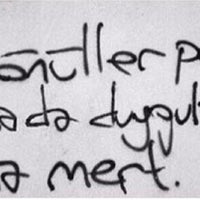 önüller p
a da duygul
a mert.